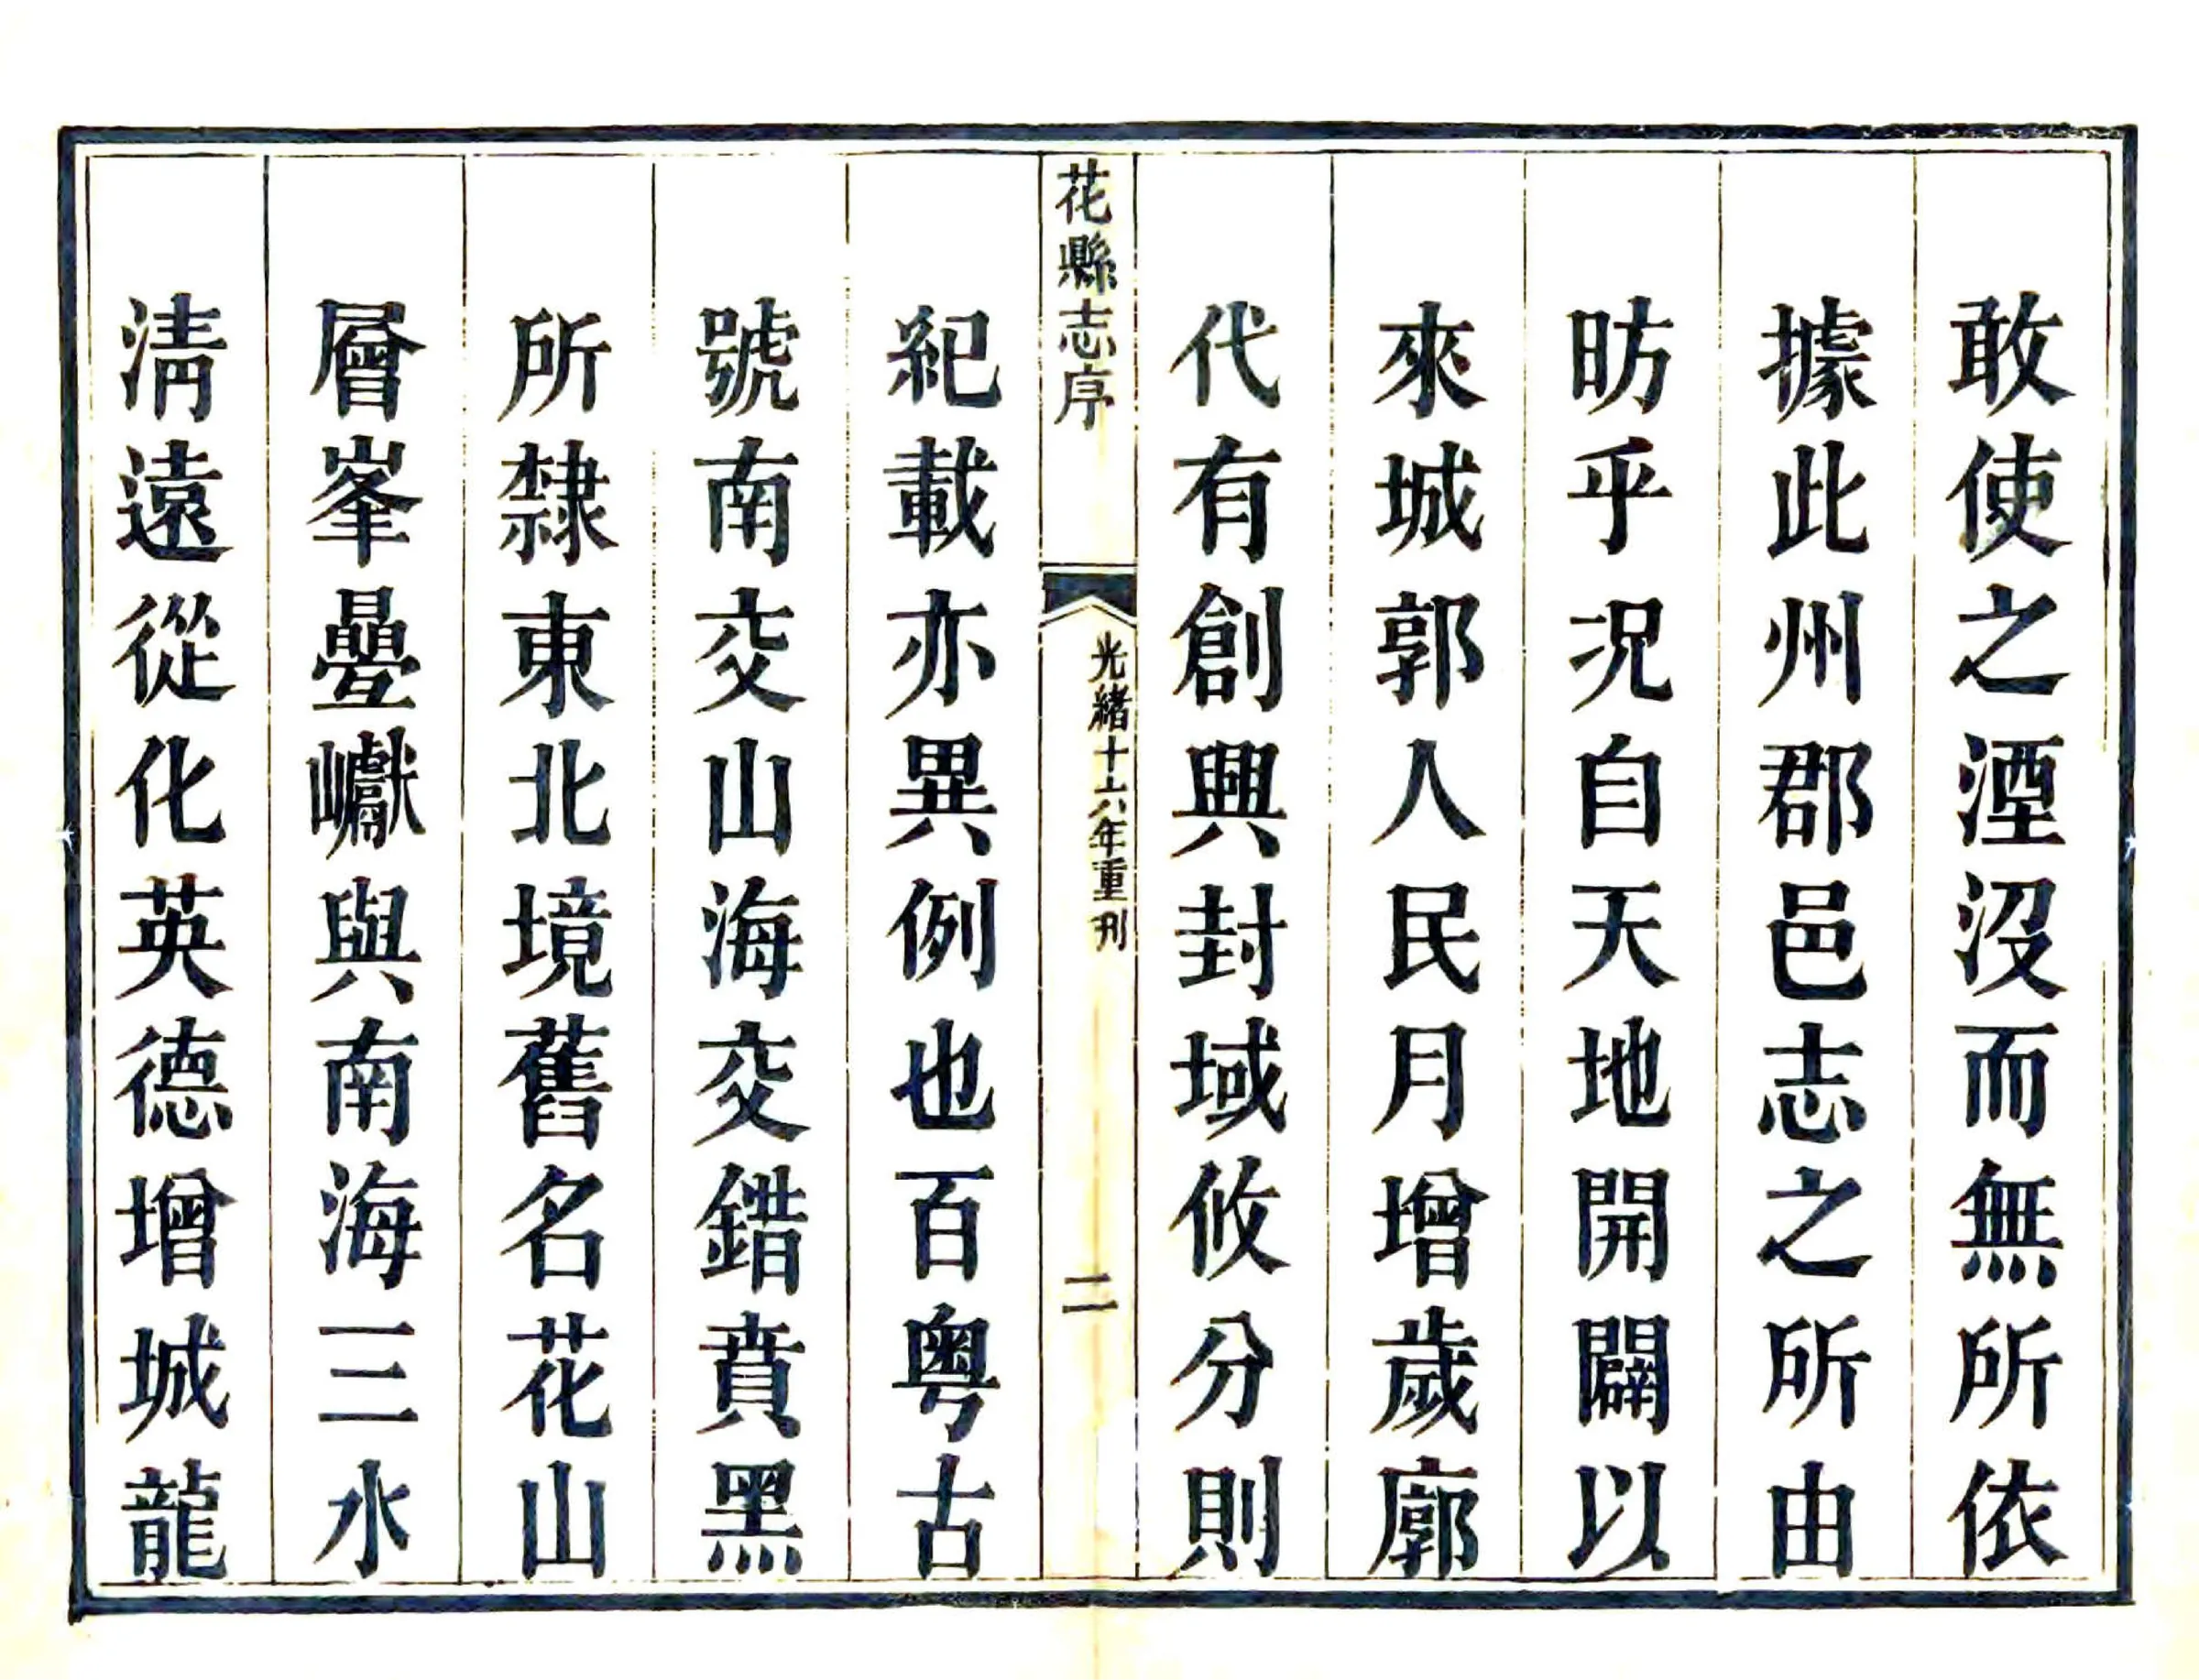 敢使之湮沒而無所依
據此州郡邑志之所由
昉乎況自天地開闢以
來城郭人民月增歲廓
代有創興封域攸分則
花縣志序
光緒十六年重刋
二
紀載亦異例也百粤古
號南交山海交錯賁黑
所隸東北境舊名花山
層峯疊巘與南海三水
淸遠從化英德增城龍